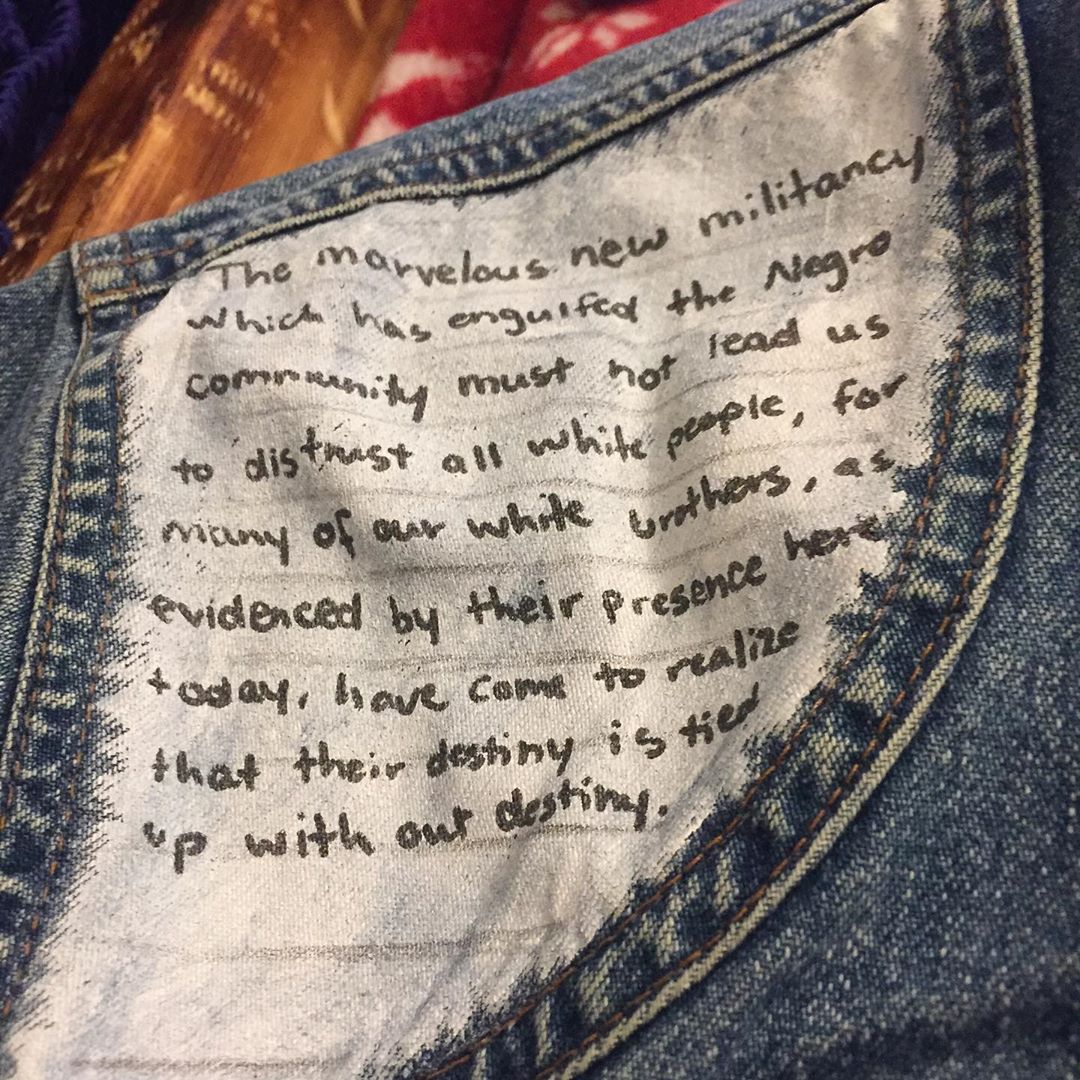 The marvelous new militancy
which has engulfed the Negro
community must not lead us
to distrust all white people, for
many of our white brothers, as
evidenced by their presence here
today, have come to realize
that their destiny is tied
up with our destiny.